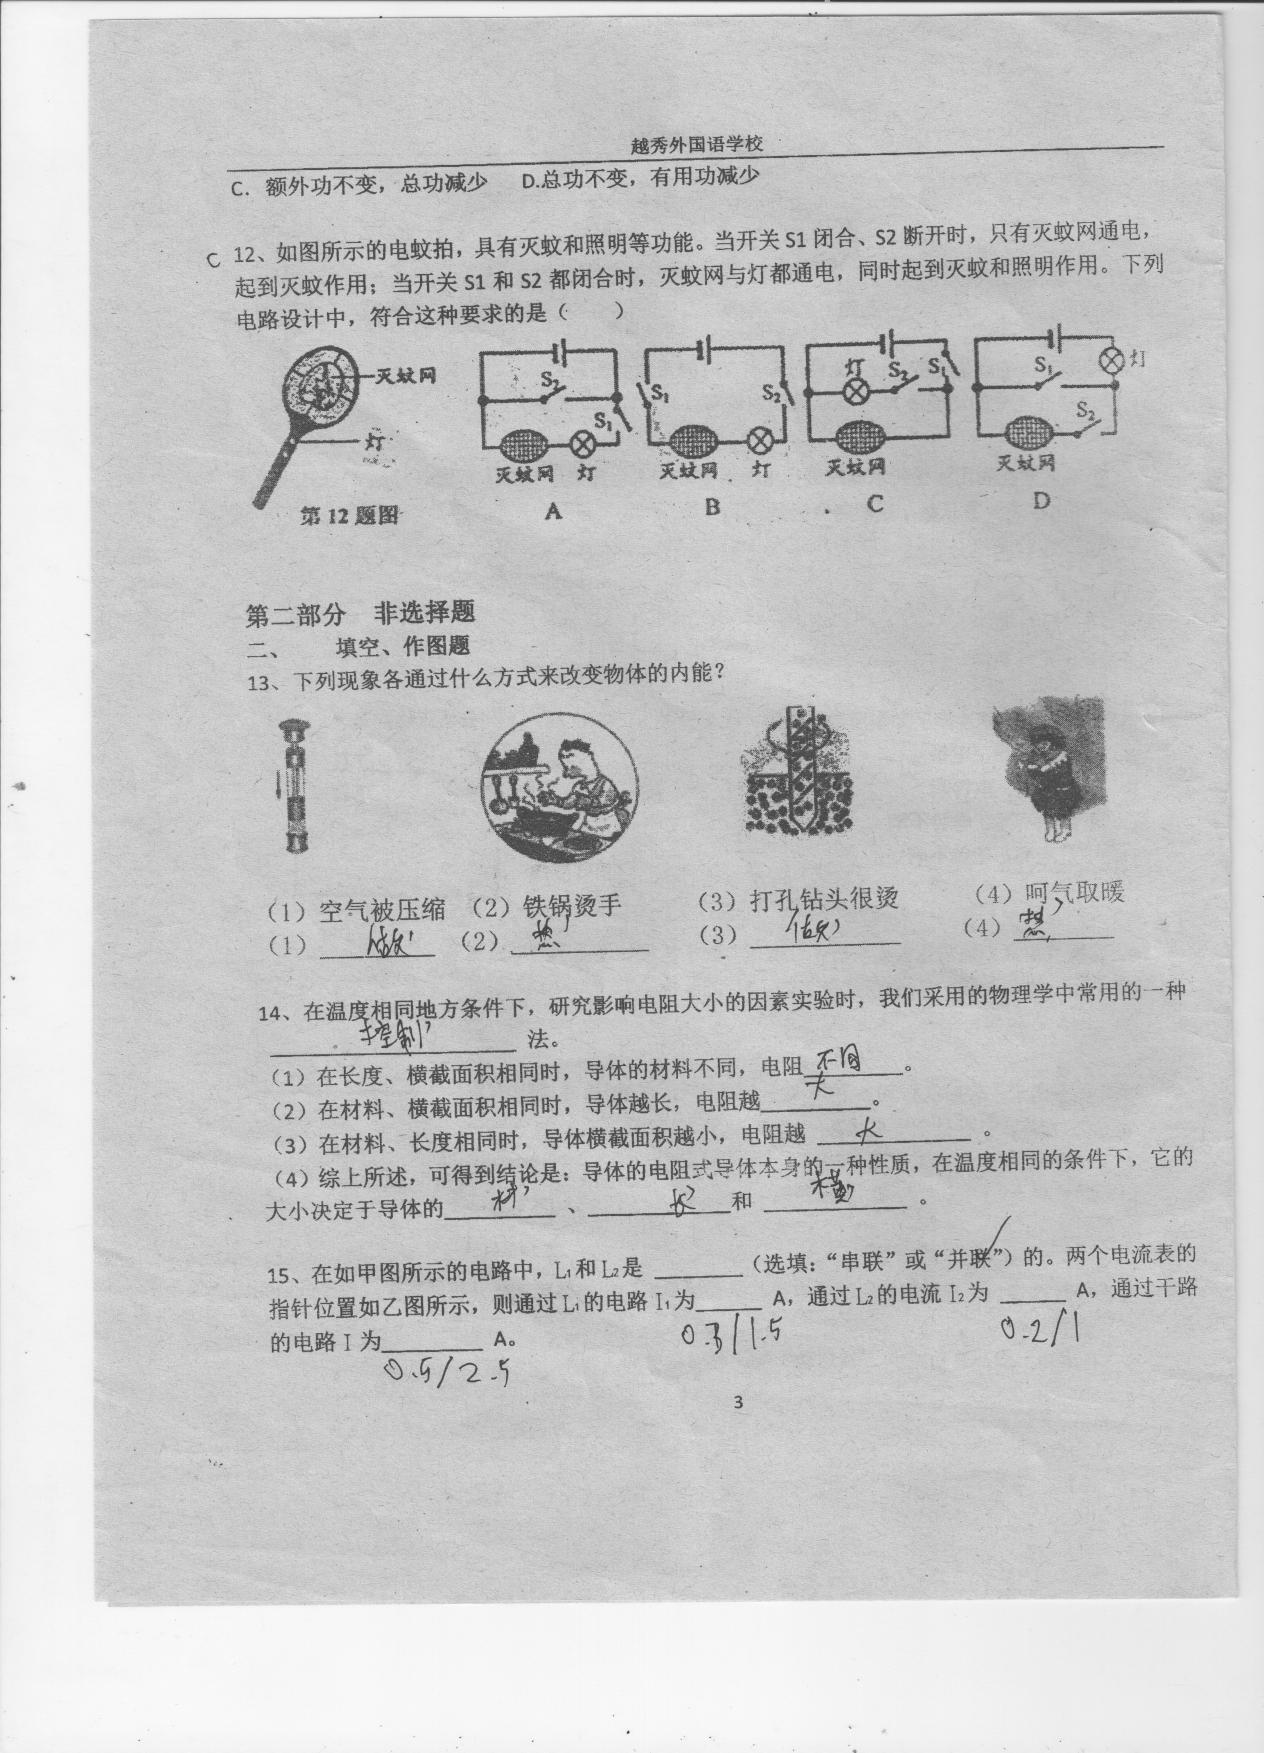 越秀外国语学校
C. 额外功不变，总功减少 D.总功不变，有用功减少
C 12、如图所示的电蚊拍，具有灭蚊和照明等功能。当开关 S1 闭合、S2 断开时，只有灭蚊网通电，
起到灭蚊作用；当开关 S1 和 S2 都闭合时，灭蚊网与灯都通电，同时起到灭蚊和照明作用。下列
电路设计中，符合这种要求的是（ ）
灭蚊网
灯
第 12 题图
S₂
S₁
灭蚊网 灯
A
S₁ S₂
灭蚊网 灯
B
灯 S₂ S₁
灭蚊网
C
灯
S₁
S₂
灭蚊网
D
第二部分 非选择题
二、 填空、作图题
13、下列现象各通过什么方式来改变物体的内能？
（1）空气被压缩 （2）铁锅烫手 （3）打孔钻头很烫 （4）呵气取暖
（1）做 （2）热 （3）做 （4）热
14、在温度相同地方条件下，研究影响电阻大小的因素实验时，我们采用的物理学中常用的一种
控制 法。
（1）在长度、横截面积相同时，导体的材料不同，电阻不同。
（2）在材料、横截面积相同时，导体越长，电阻越大。
（3）在材料、长度相同时，导体横截面积越小，电阻越 大 。
（4）综上所述，可得到结论是：导体的电阻式导体本身的一种性质，在温度相同的条件下，它的
大小决定于导体的 材 、 长 和 横 。
15、在如甲图所示的电路中，L₁和 L₂是 （选填：“串联”或“并联”）的。两个电流表的
指针位置如乙图所示，则通过 L₁的电路 I₁为 A，通过 L₂的电流 I₂为 A，通过干路
的电路 I 为 A。
0.3/1.5 0.2/1
0.5/2.5
3